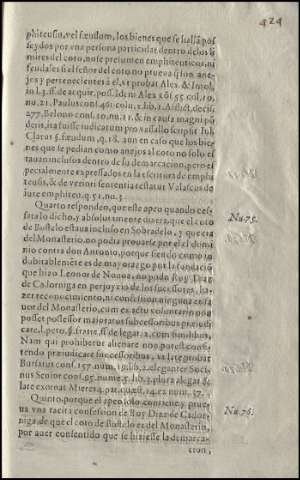 424
phiteusis, vel fæudum, los bienes que se hallã pos
seydos por vna persona particular dentro de los li
mites del coto, no se presumen emphiteuticos, ni
feudales si el señor del coto no prueua
jos y pertenecientes à el, vt probat Alex. & Imol.
in l. 3. ff. de acquir. poss. Idem Alex. 
nu. 21. Paulus cons. 461. col. 1. lib. 1. Afflict. decis.
277. Belono cons. 10. nu. 11. & in causa magni põ
deris, ita fuisse iudicatum pro vassallo scripsit Iul.
Clarus §. fæudum, q. 18. aun en caso que los bie-
nes que se pedian como anejos al coto no solo es
tauan inclusos dentro de su demarcacion, pero es
pecialmente expressados en la escritura de emphi
teusis, & de veriori sententia testatur Valascus de
iure emphiteo. q. 51. no. 3.
Quarto responden, que este apeo quando ces-
sara lo dicho, y absolutamente dixera que el coto
de Bostelo estaua incluso en Sobradelo, y que era
del Monasterio, no podia prouarse por el el domi
nio contra don Antonio, porque siendo como in
dubitablemẽte es de mayorazgo por la fundaciõ
que hizo Leonor de Nouoa, no pudo Ruy Diaz
de Cadorniga en perjuyzio de los successores, ha-
zer reconocimiento, ni confession ninguna en fa
uor del Monasterio, cum ex actu voluntario non
posset possessor maioratus successoribus præiudi
care, l. peto, §. fratre, ff. de legat. 2. cum similibus.
Nam qui prohibetur alienare non potest confi-
tendo præiudicare successoribus, 
Bursatus cons. 157. num. 19. lib. 2. eleganter Soci-
nus Senior cons. 95. nume. 5. lib. 3. plura alegat &
late exornat Mieres 4. par. quæst. 14. ex num. 37.
Quinto, porque el apeo solo contiene y prue-
ua vna tacita confession de Roy Diaz de Cador-
niga de que el coto de Bostelo es del Monasterio,
por auer consentido que se hiziesse la demarca-
cion,
Nu. 75.
Nu. 76.